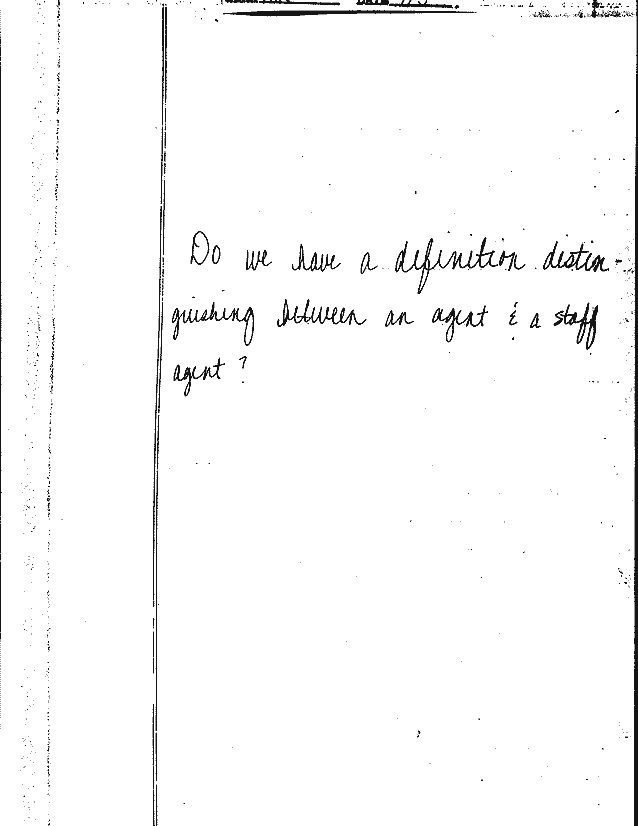 Do we have a definition distin-
guishing between an agent & a staff
agent?